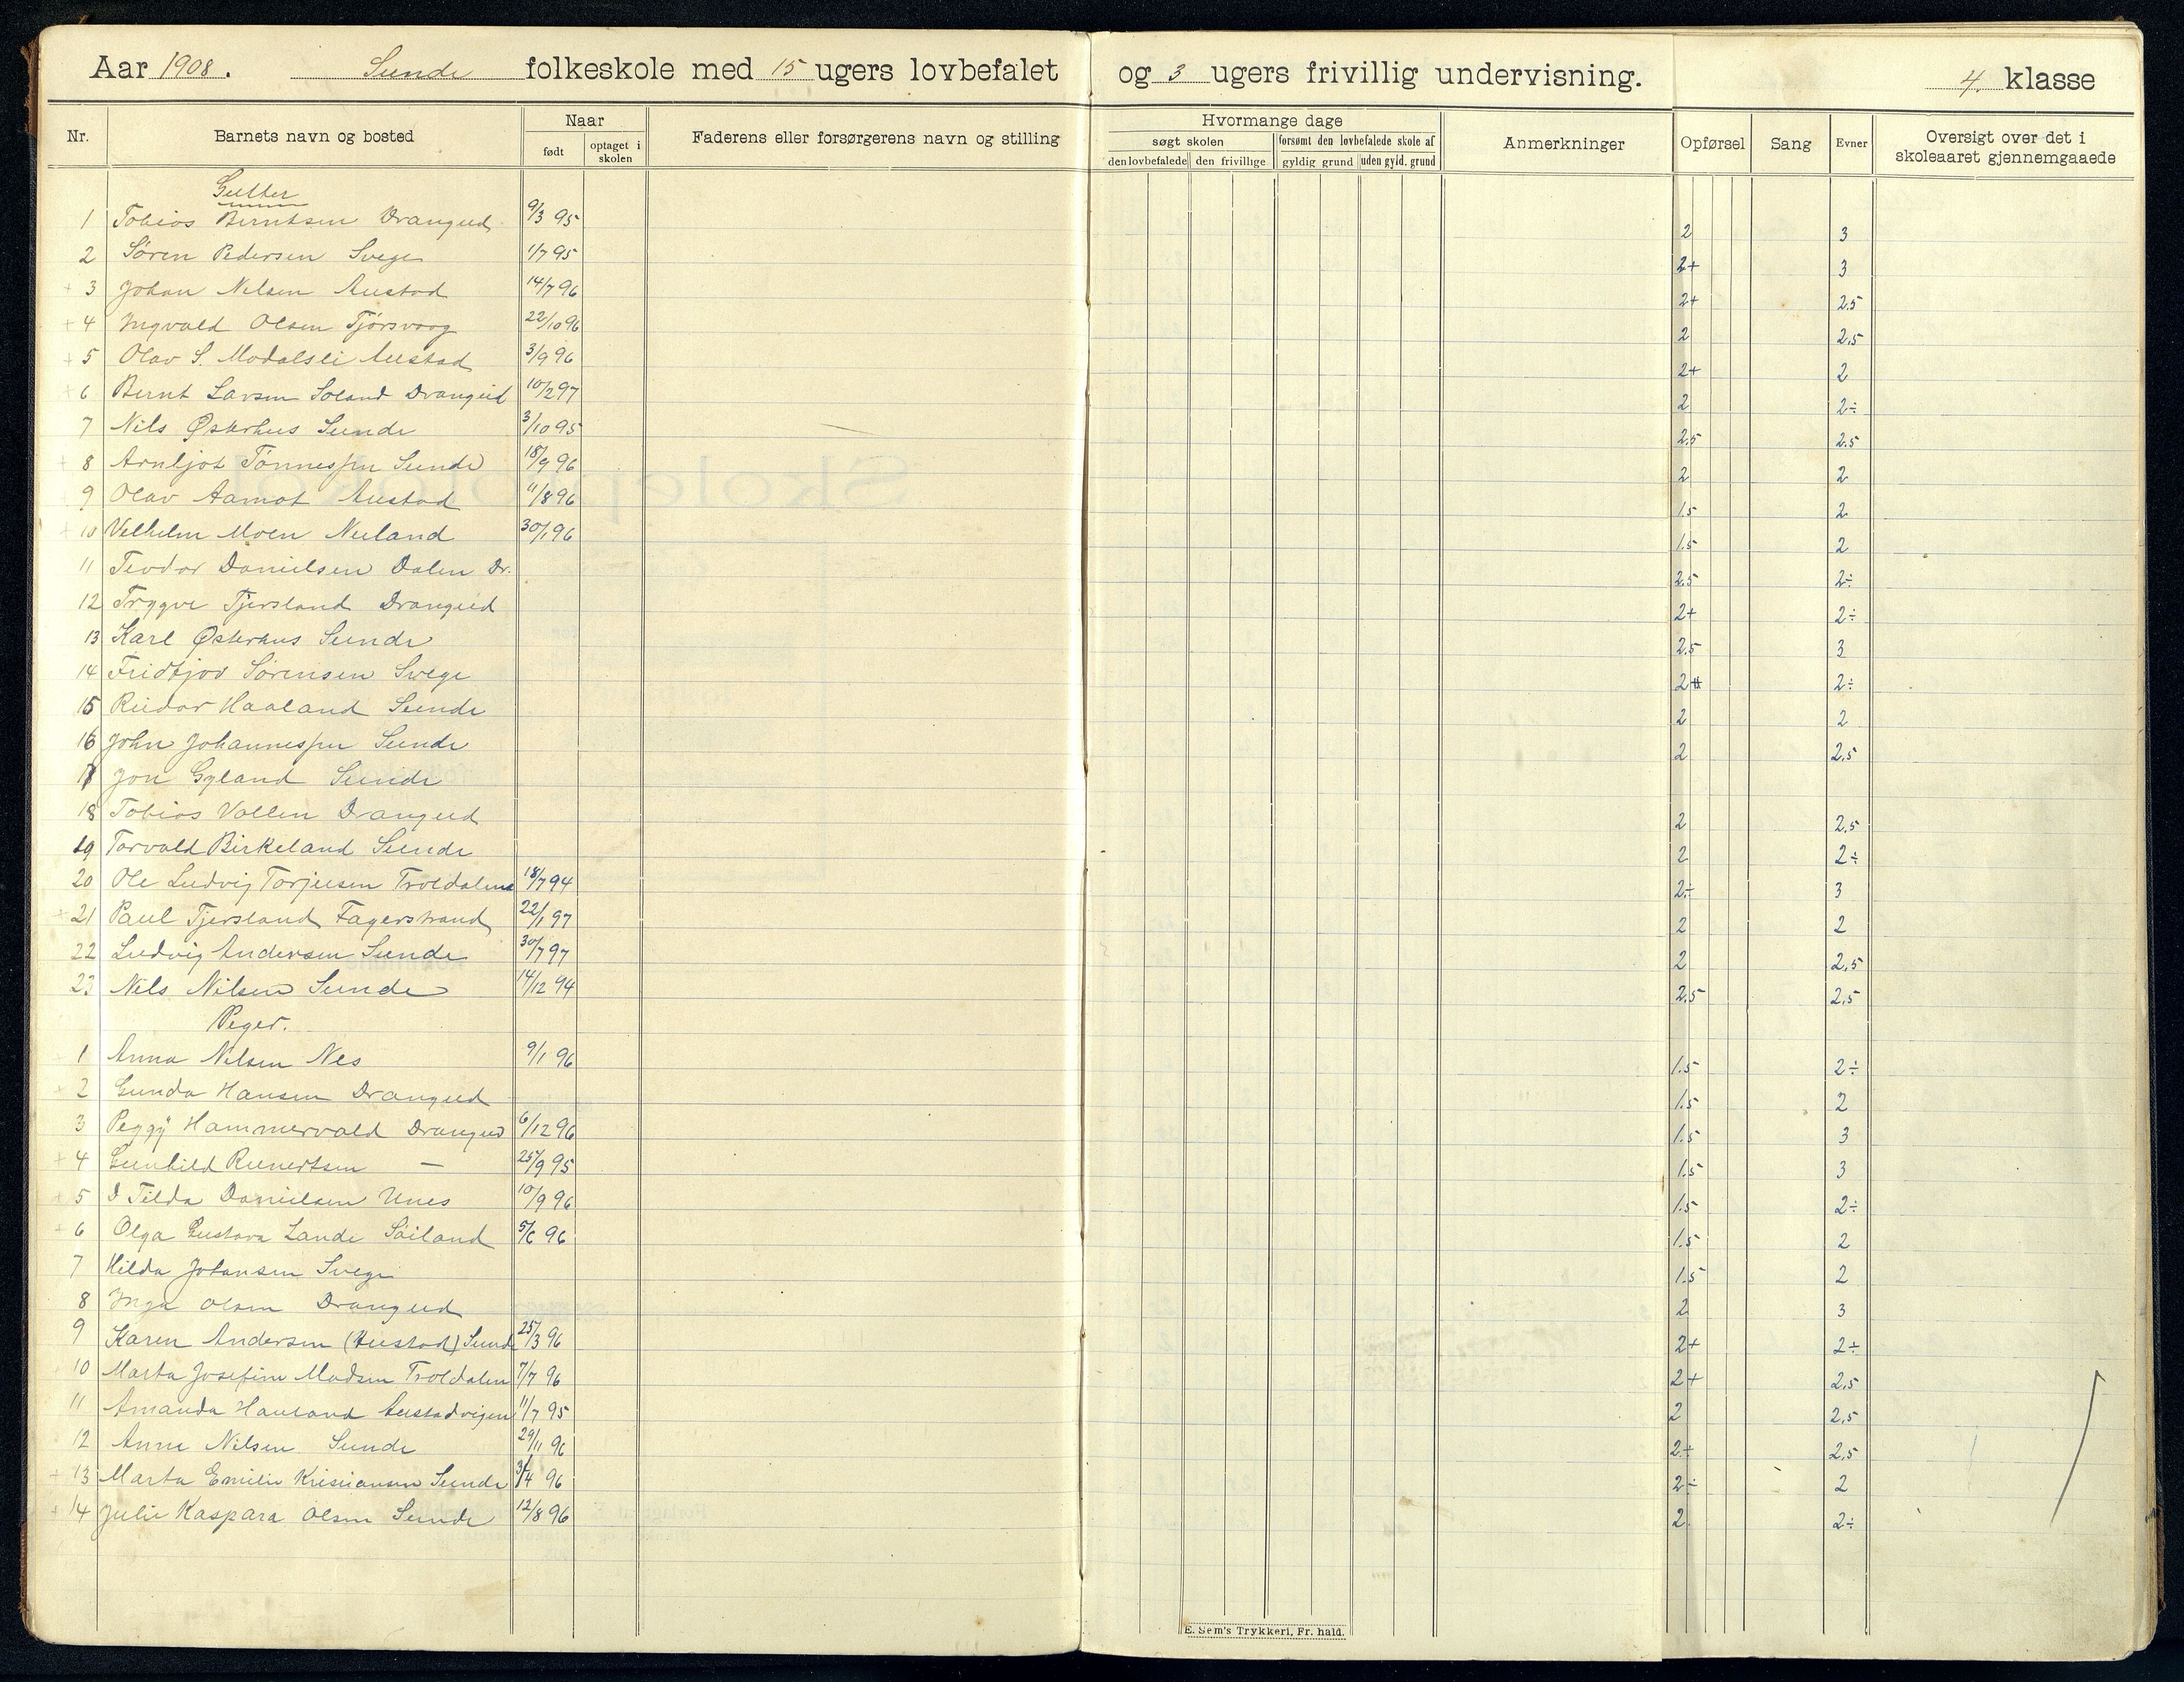 Aar 1908. Sunde folkeskole med 15 ugers lovbefalet og 3 ugers frivillig undervisning. 4. klasse
Nr. Barnets navn og bosted Naar født optaget i skolen Faderens eller forsørgerens navn og stilling Hvormange dage søgt skolen den lovbefalede den frivillige forsømt den lovbefalede skole af gyldig grund uden gyld. grund Anmerkninger Opførsel Sang Evner Oversigt over det i skoleaaret gjennemgaaede
Gutter
1 Tobias Berntsen Drangeid 9/3 95 2 3
2 Søren Pedersen Svege 1/7 95 2+ 3
+ 3 Johan Nilsen Austad 14/7 96 2+ 2.5
+ 4 Ingvald Olsen Tjørsvaag 22/10 96 2 2.5
+ 5 Olav S. Modalsli Austad 3/9 96 2+ 2
+ 6 Bernt Larsen Søland Drangeid 10/2 97 2 2÷
7 Nils Østerhus Sunde 3/10 95 2.5 2.5
+ 8 Arnljot Tønnessen Sunde 18/9 96 2 2
9 Olav Aamot Austad 11/8 96 1.5 2
+ 10 Velhelm Moen Nuland 30/1 96 1.5 2
11 Teodor Danielsen Dalen Dr. 2.5 2÷
12 Trygve Tjersland Drangeid 2+ 2÷
13 Karl Østerhus Sunde 2.5 3
14 Fridtjov Sørensen Svege 2+ 2÷
15 Reidar Haaland Sunde 2 2
16 John Johannessen Sunde 2 2.5
17 Jon Gyland Sunde
18 Tobias Vollen Drangeid 2 2.5
19 Torvald Birkeland Sunde 2 2÷
20 Ole Ludvig Torjusen Troldalen 18/7 94 2÷ 3
+ 21 Paul Tjersland Fagerstrand 22/1 97 2 2
22 Ludvig Andersen Sunde 30/7 97 2 2.5
23 Nils Nilsen Sunde 14/12 94 2.5 2.5
Peger.
1 Anna Nilsen Nes 9/1 96 1.5 2÷
+ 2 Gunda Hansen Drangeid 1.5 2
3 Peggy Hammervold Drangeid 6/12 96 1.5 3
+ 4 Gunhild Reinertsen — 25/9 95 1.5 3
+ 5 Tilda Danielsen Unes 10/9 96 1.5 2÷
+ 6 Olga Gustava Lande Søiland 5/6 96 1.5 2
7 Hilda Johansen Svege 1.5 2
8 Inga Olsen Drangeid 2 3
9 Karen Andersen (Austad) Sunde 25/3 96 2+ 2÷
10 Marta Josefine Madsen Troldalen 7/7 96 2+ 2.5
11 Amanda Hauland Austadvigen 11/7 95 2 2.5
12 Anne Nilsen Sunde 29/11 96 2÷ 2.5
+ 13 Marta Emilie Kristiansen Sunde 3/4 96 2÷ 2
+ 14 Julie Kaspara Olsen Sunde 12/8 96 2 2÷
E. Sem's Trykkeri, Fr. hald.